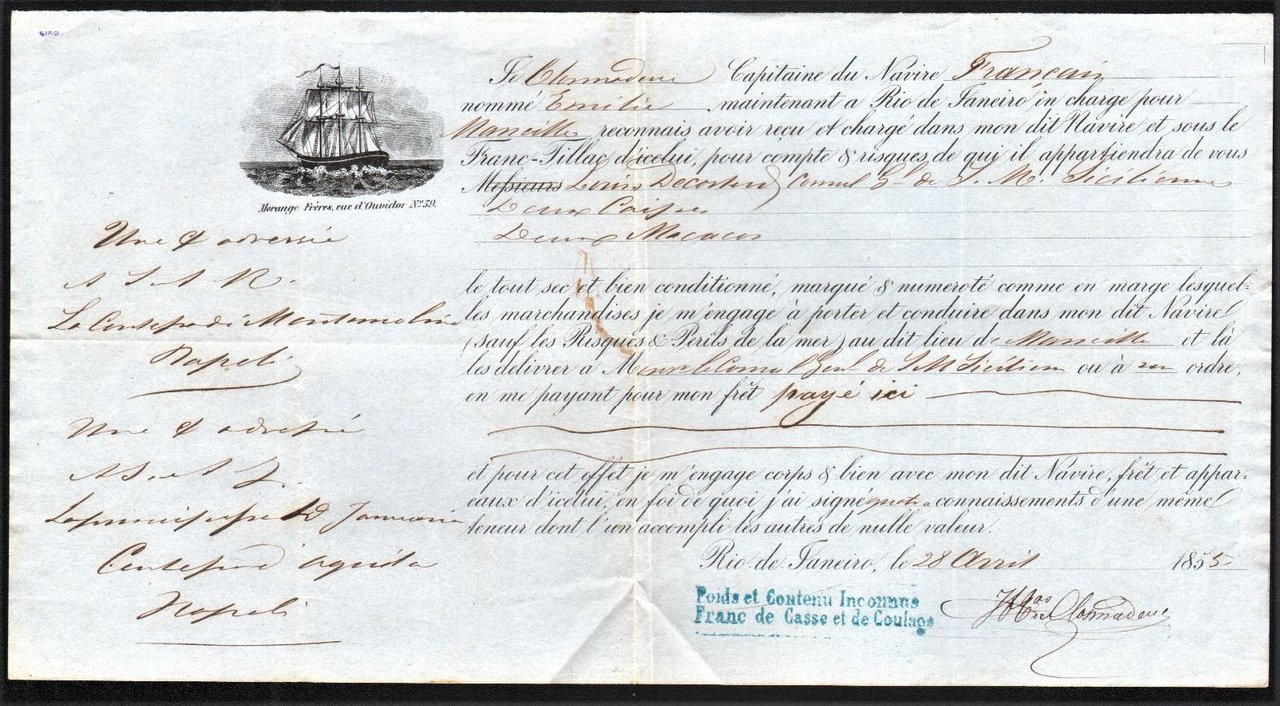 Je Capitaine du Navire Français
nommé Emilie maintenant a Rio de Janeiro en charge pour
Marseille reconnais avoir reçu et chargé dans mon dit Navire et sous le
Franc-Tillac d'icelui, pour compte & risques de qui il appartiendra de vous
Messieurs Louis Consul Gl de S. M. Sicilienne
Deux Caisses
Deux Macacos
Morange Frères, rue d'Ouvidor No. 59.
Une & adressée
A S A R.
La Contessa di Montemolin
Napoli
Une & adressé
A S. A I.
La principessa D Januaria
Contessa d'Aquila
Napoli
le tout sec et bien conditionné, marqué & numeroté comme en marge lesquel-
les marchandises je m'engage à porter et conduire dans mon dit Navire
(sauf les Risques & Perils de la mer) au dit lieu de Marseille et là
les délivrer a Mr le Consul Genl de S M Sicilien ou à son ordre,
en me payant pour mon frêt payé ici
et pour cet effet je m'engage corps & bien avec mon dit Navire, frêt et appar-
eaux d'icelui, en foi de quoi j'ai signé connaissements d'une même
teneur dont l'un accompli les autres de nulle valeur.
Rio de Janeiro, le 28 Avril 1855
Poids et Contenu Inconnus
Franc de Casse et de Coulage